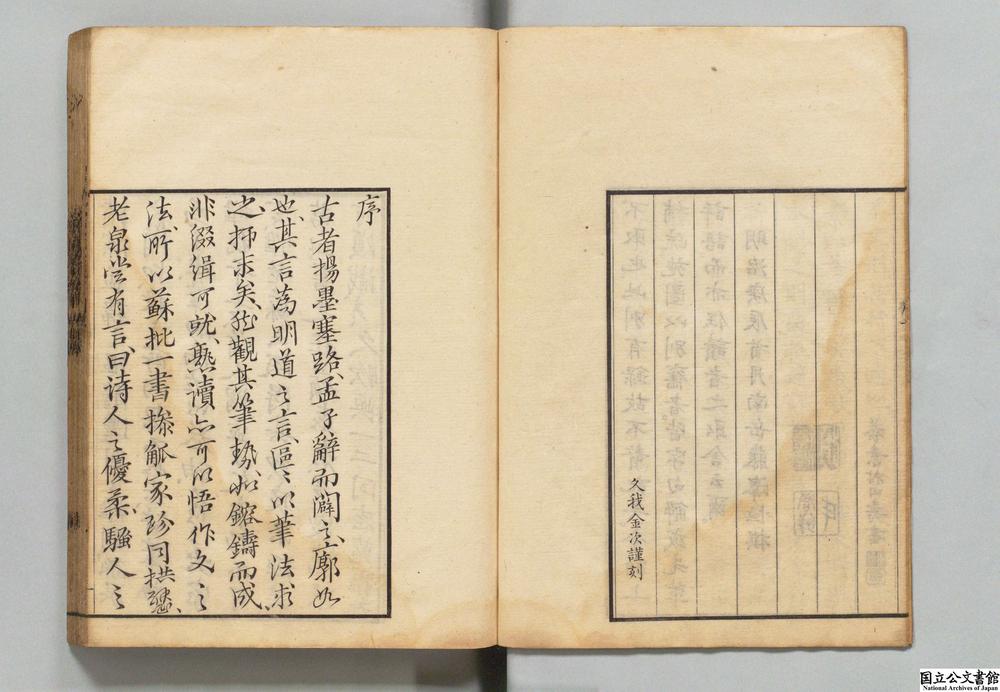 久我金次謹刻
序
古者揚墨塞路、孟子辭而闢之廓如
也、其言為明道之言、區〻以筆法求
之、抑末矣、然觀其筆勢、如鎔鑄而成
非綴緝可就、熟讀亦可以悟作文之
法、所以蘇批一書操觚家珍同拱璧、
老泉嘗有言、曰、詩人之優柔、騷人之
国立公文書館
National Archives of Japan